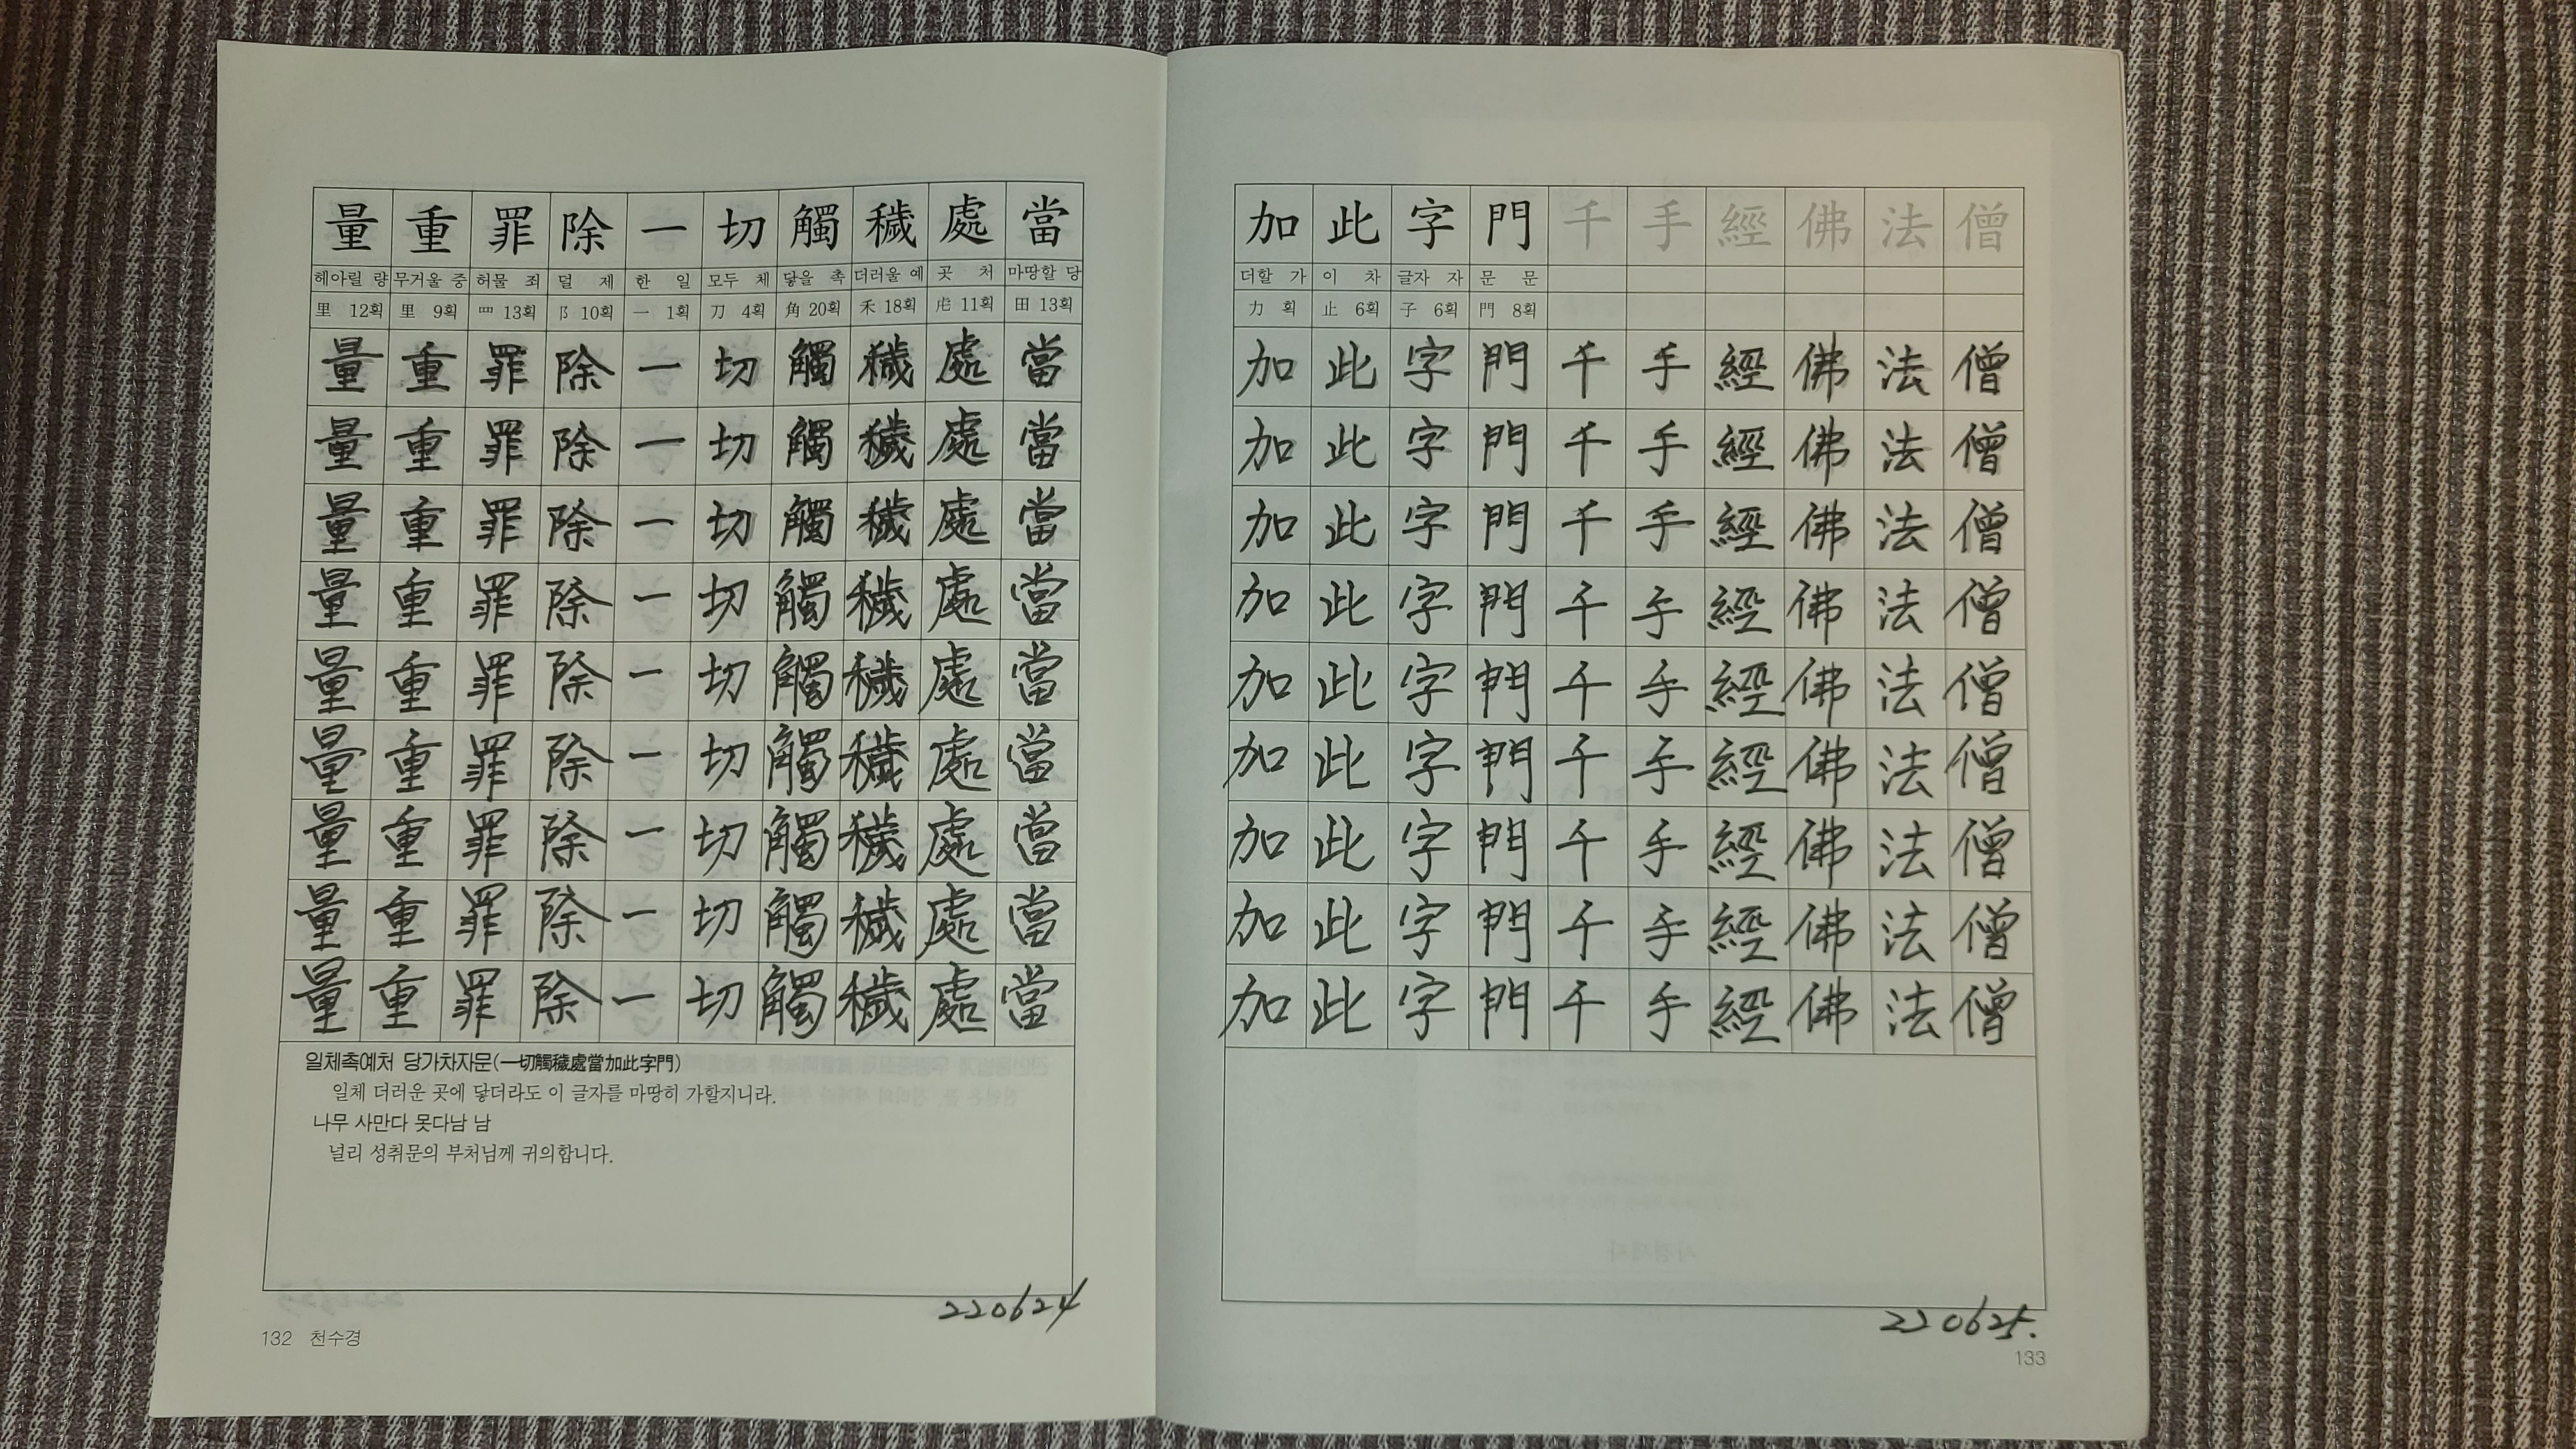 量 重 罪 除 一 切 觸 穢 處 當
헤아릴 량 무거울 중 허물 죄 덜 제 한 일 모두 체 닿을 촉 더러울 예 곳 처 마땅할 당
里 12획 里 9획 罒 13획 阝 10획 一 1획 刀 4획 角 20획 禾 18획 虍 11획 田 13획
量 重 罪 除 一 切 觸 穢 處 當
量 重 罪 除 一 切 觸 穢 處 當
量 重 罪 除 一 切 觸 穢 處 當
量 重 罪 除 一 切 觸 穢 處 當
量 重 罪 除 一 切 觸 穢 處 當
量 重 罪 除 一 切 觸 穢 處 當
量 重 罪 除 一 切 觸 穢 處 當
量 重 罪 除 一 切 觸 穢 處 當
量 重 罪 除 一 切 觸 穢 處 當
일체촉예처 당가차자문(一切觸穢處當加此字門)
일체 더러운 곳에 닿더라도 이 글자를 마땅히 가할지니라.
나무 사만다 못다남 남
널리 성취문의 부처님께 귀의합니다.
220624
132 천수경
加 此 字 門 千 手 經 佛 法 僧
더할 가 이 차 글자 자 문 문
力 획 止 6획 子 6획 門 8획
加 此 字 門 千 手 經 佛 法 僧
加 此 字 門 千 手 經 佛 法 僧
加 此 字 門 千 手 經 佛 法 僧
加 此 字 門 千 手 經 佛 法 僧
加 此 字 門 千 手 經 佛 法 僧
加 此 字 門 千 手 經 佛 法 僧
加 此 字 門 千 手 經 佛 法 僧
加 此 字 門 千 手 經 佛 法 僧
加 此 字 門 千 手 經 佛 法 僧
220625.
133